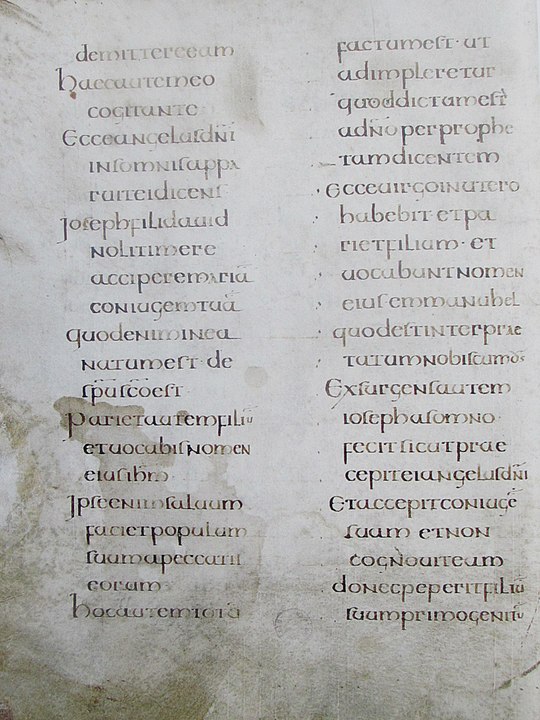 demittereeam
haecautemeo
cogitante
Ecceangelusdn̄i
insomnisappa
ruiteidicens
Josephfilidauid
nolitimere
acciperemariā
coniugemtuā
quodeniminea
natumest·de
sp̄us̄c̄oest·
Parietautemfiliū
etuocabisnomen
eiusih̄m·
Ipseenimsaluum
facietpopulum
suumapeccatis
eorum
hocautemtotū
factumest·ut
adimpleretur
quoddictumest
adn̄operprophe
tamdicentem
Ecceuirgoinutero
habebit·etpa
rietfilium·et
uocabuntnomen
eiusemmanuhel
quodestinterprae
tatumnobiscumds̄
Exsurgensautem
iosephasomno·
fecitsicutprae
cepiteiangelusdn̄i
Etaccepitconiugē
suam etnon
cognouiteam
donecpeperitfiliū
suumprimogenitū